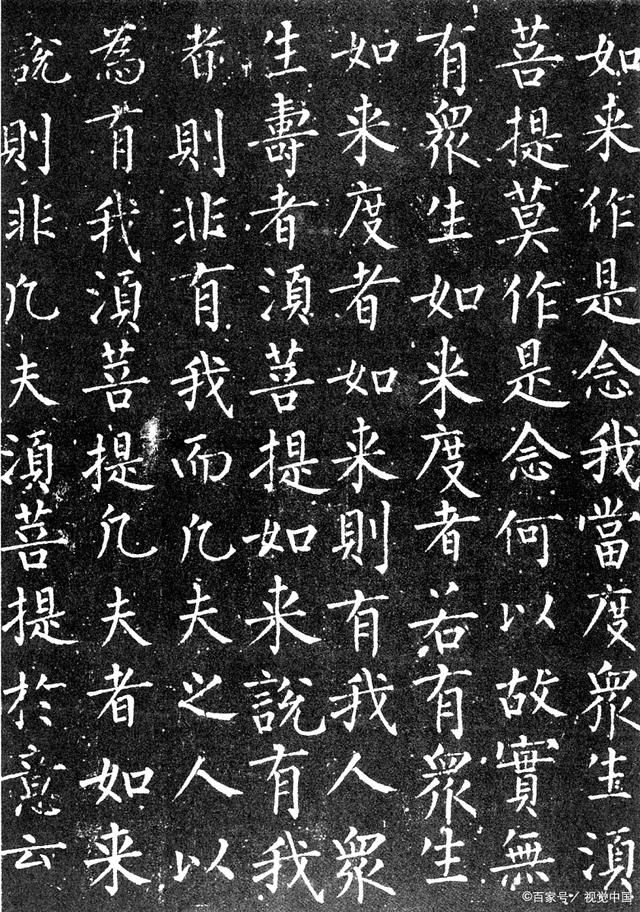 如来作是念我當度眾生湏
菩提莫作是念何以故實無
有眾生如来度者若有眾生
如来度者如来則有我人眾
生壽者湏菩提如来說有我
者則非有我而凡夫之人以
為有我湏菩提凡夫者如来
說則非凡夫湏菩提於意云
©百家号/视觉中国